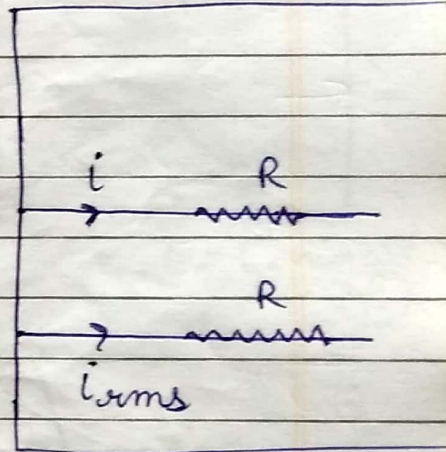 i R
R
irms